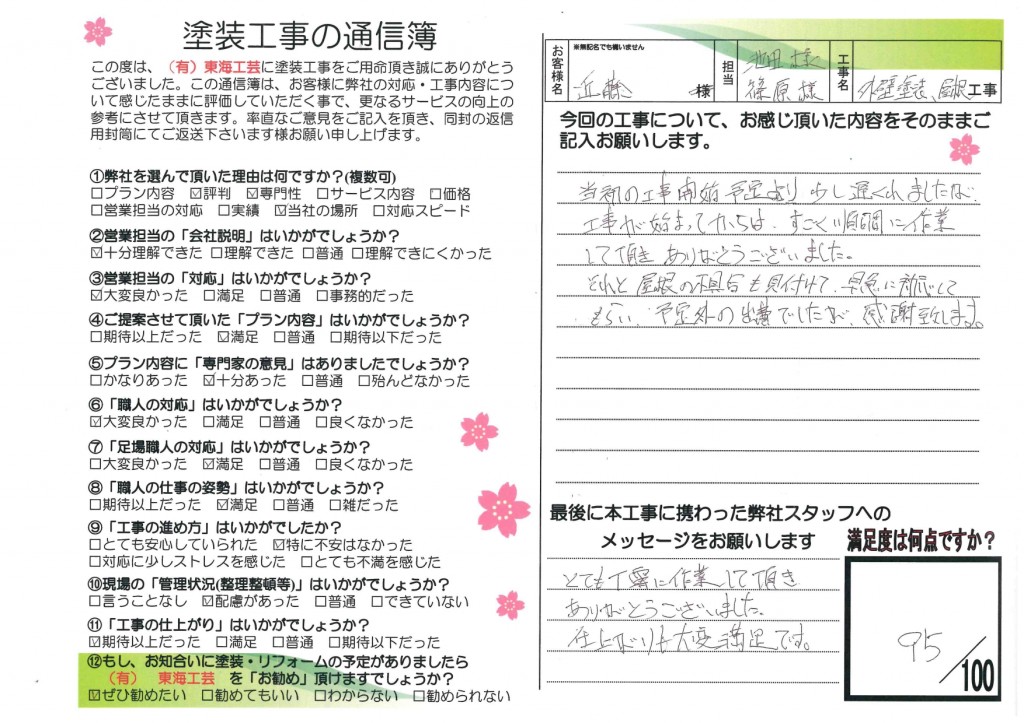 塗装工事の通信簿
この度は、(有)東海工芸に塗装工事をご用命頂き誠にありがとう
ございました。この通信簿は、お客様に弊社の対応・工事内容につ
いて感じたままに評価していただく事で、更なるサービスの向上の
参考にさせて頂きます。率直なご意見をご記入を頂き、同封の返信
用封筒にてご返送下さいます様お願い申し上げます。
①弊社を選んで頂いた理由は何ですか?(複数可)
□プラン内容 ☑評判 ☑専門性 □サービス内容 □価格
□営業担当の対応 □実績 ☑当社の場所 □対応スピード
②営業担当の「会社説明」はいかがでしょうか?
☑十分理解できた □理解できた □普通 □理解できにくかった
③営業担当の「対応」はいかがでしょうか?
☑大変良かった □満足 □普通 □事務的だった
④ご提案させて頂いた「プラン内容」はいかがでしょうか?
□期待以上だった ☑満足 □普通 □期待以下だった
⑤プラン内容に「専門家の意見」はありましたでしょうか?
□かなりあった ☑十分あった □普通 □殆んどなかった
⑥「職人の対応」はいかがでしょうか?
☑大変良かった □満足 □普通 □良くなかった
⑦「足場職人の対応」はいかがでしょうか?
□大変良かった ☑満足 □普通 □良くなかった
⑧「職人の仕事の姿勢」はいかがでしょうか?
□期待以上だった ☑満足 □普通 □雑だった
⑨「工事の進め方」はいかがでしたか?
□とても安心していられた ☑特に不安はなかった
□対応に少しストレスを感じた □とても不満を感じた
⑩現場の「管理状況(整理整頓等)」はいかがでしょうか?
□言うことなし ☑配慮があった □普通 □できていない
⑪「工事の仕上がり」はいかがでしょうか?
☑期待以上だった □満足 □普通 □期待以下だった
⑫もし、お知合いに塗装・リフォームの予定がありましたら
(有) 東海工芸 を「お勧め」頂けますでしょうか?
☑ぜひ勧めたい □勧めてもいい □わからない □勧められない
お客様名 ※無記名でも構いません 近藤 様
担当 池田様 篠原様
工事名 外壁塗装、屋根工事
今回の工事について、お感じ頂いた内容をそのままご
記入お願いします。
当初の工事開始予定より少し遅くれましたが、
工事が始まってからは、すごく順調に作業
して頂きありがとうございました。
それと屋根の不具合も見付けて、早急に対応して
もらい、予定外の出費でしたが、感謝致します。
最後に本工事に携わった弊社スタッフへの
メッセージをお願いします
とても丁寧に作業して頂き
ありがとうございました。
仕上がりも大変満足です。
満足度は何点ですか?
95/100